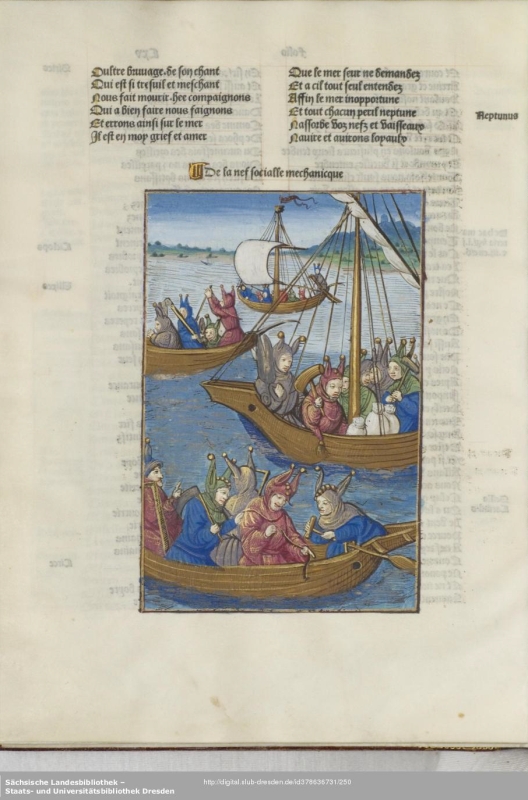 Oultre bruuage de son chant
Qui est si tresuil et meschant
Nous fait mourir hee compaignons
Qui a bien faire nous faignons
Et errons ainsi sur le mer
Il est en moy grief et amer
Que le mer seur ne demandez
Et a cil tout seul entendez
Affin le mer inopportune
Et tout chacun peril neptune
Nassorbe voz nefz et vaisseaux
Nauire et auirons loyaulx
Neptunus
De la nef socialle mechanicque
Sächsische Landesbibliothek –
Staats- und Universitätsbibliothek Dresden
http://digital.slub-dresden.de/id378636731/250